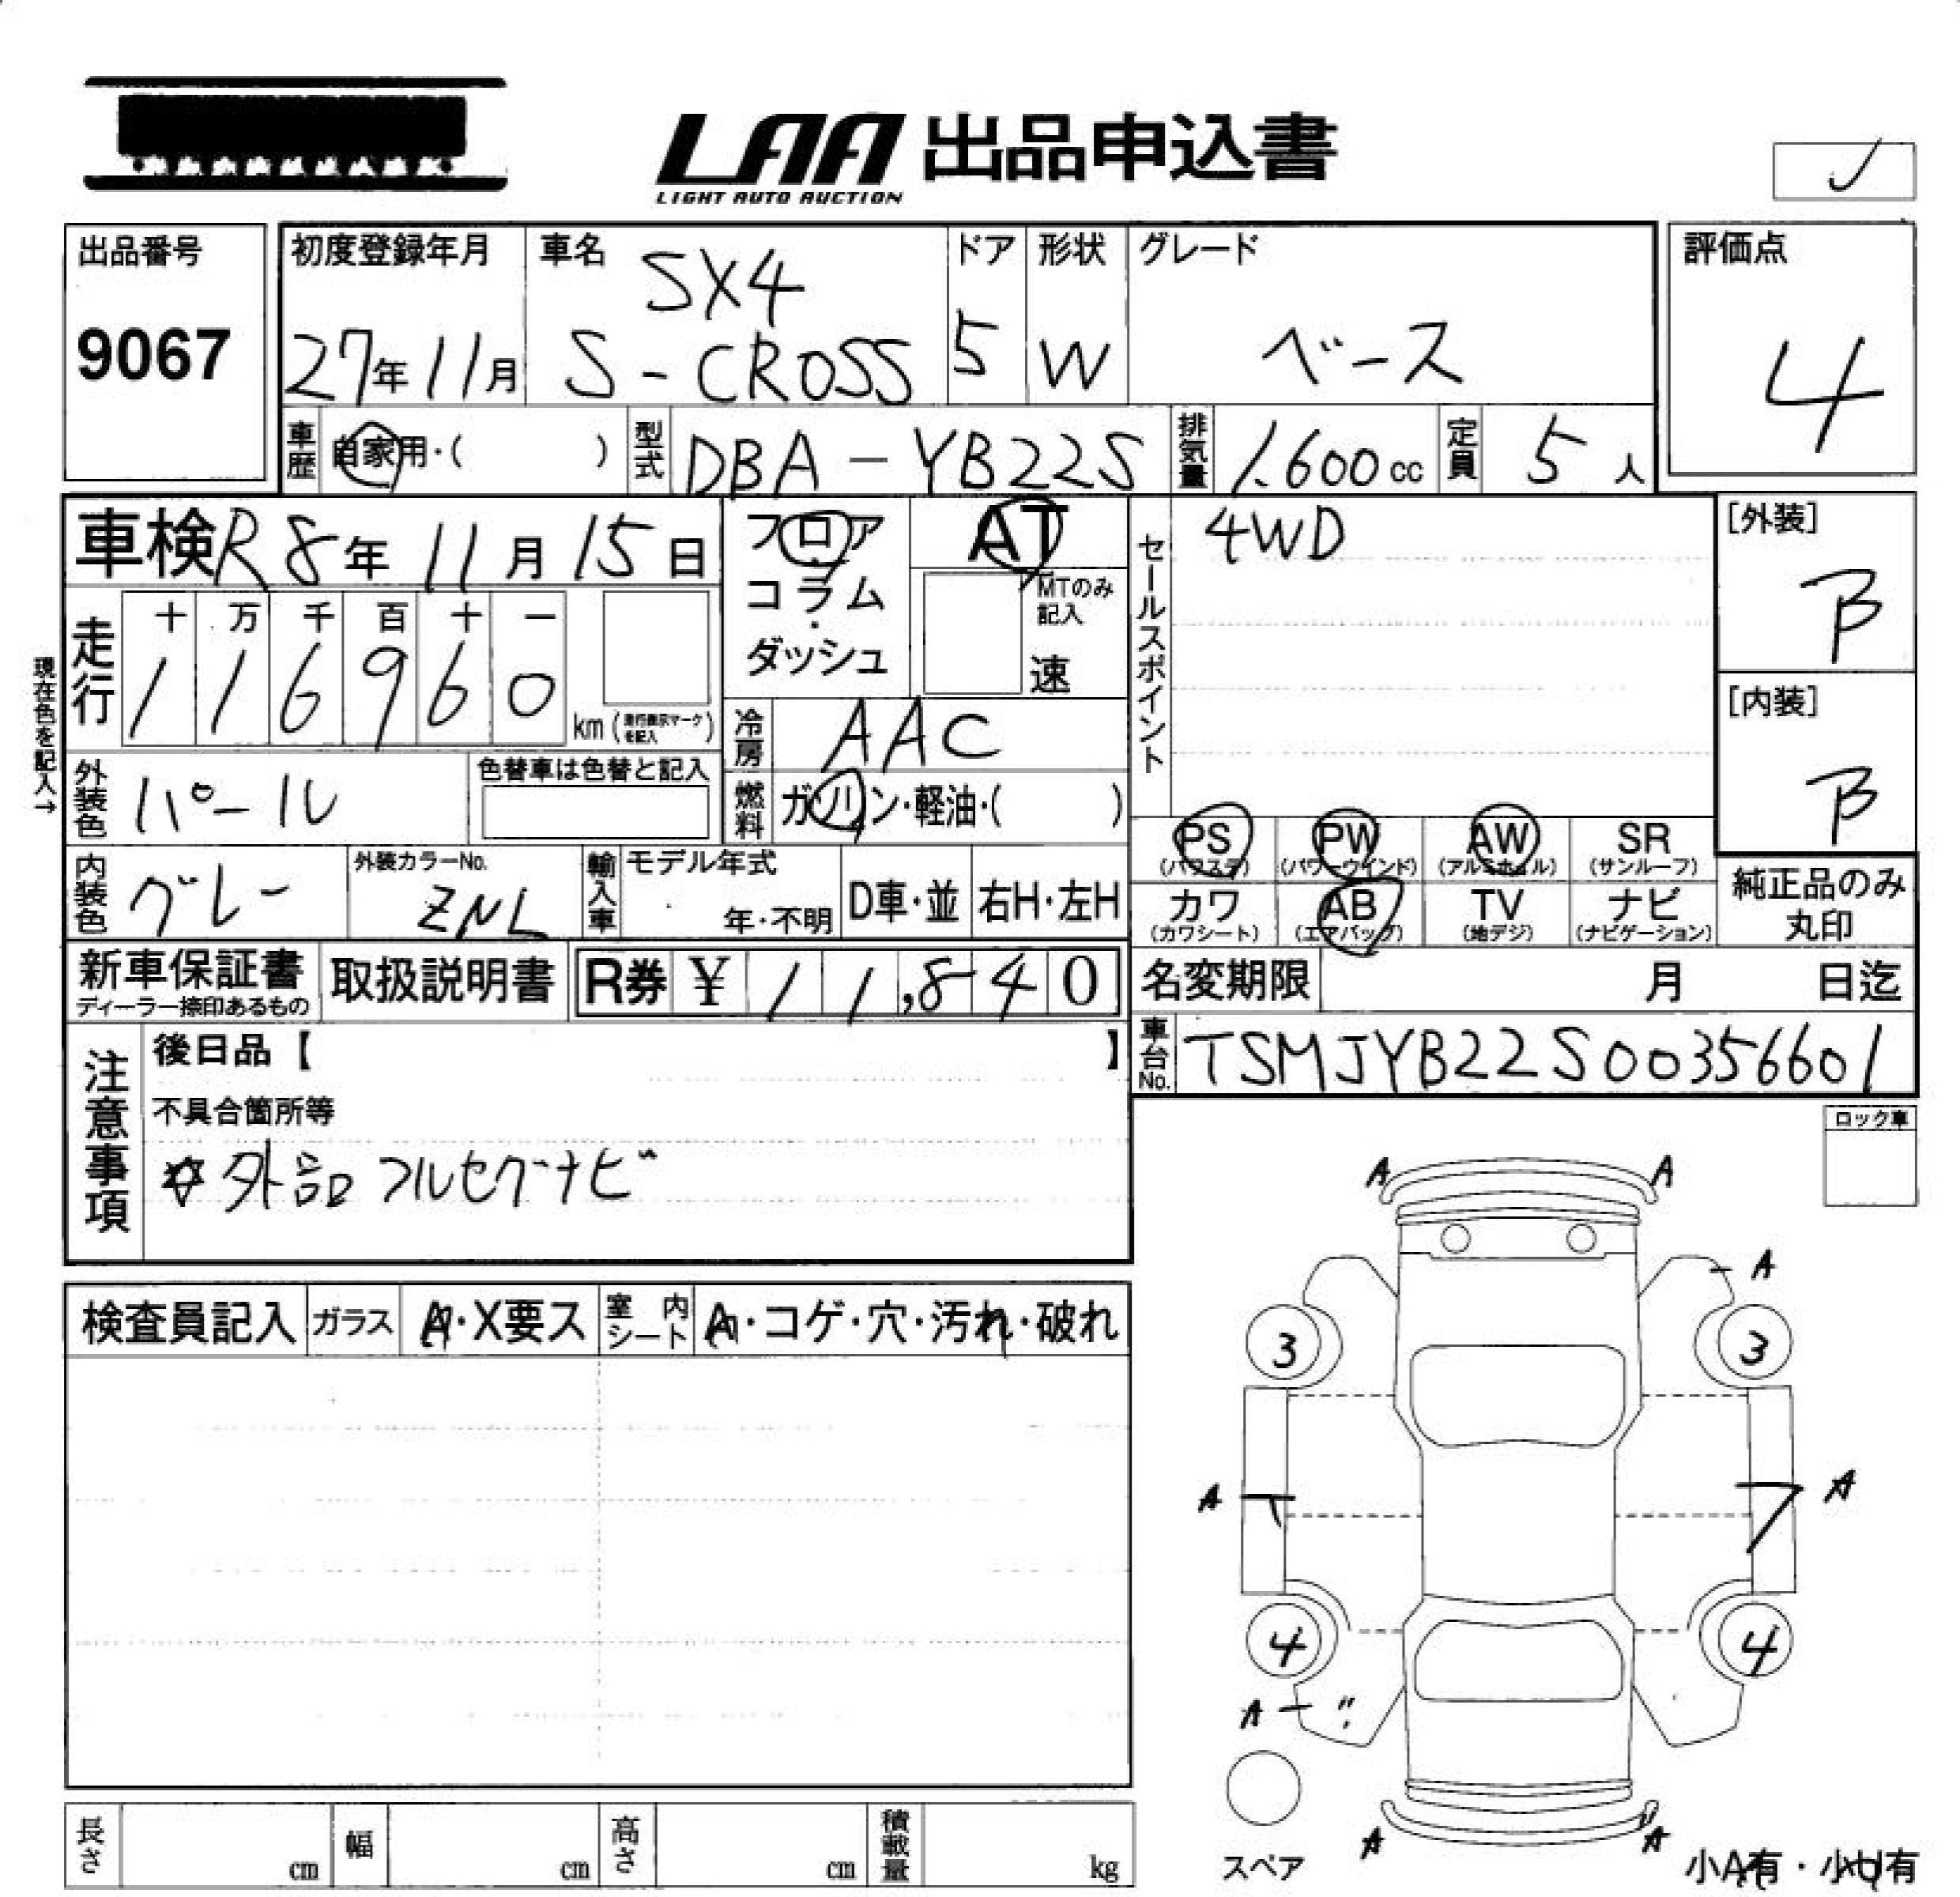 LAA 出品申込書
LIGHT AUTO AUCTION
出品番号
9067
初度登録年月
27年11月
車名
SX4
S-CROSS
ドア
5
形状
W
グレード
ベース
評価点
4
車歴 自家用・( )
型式 DBA-YB22S
排気量 1.600cc
定員 5人
車検 R8年11月15日
フロア・コラム・ダッシュ
AT
MTのみ記入
速
セールスポイント
4WD
[外装]
B
[内装]
B
現在色を記入→
走行
十 万 千 百 十 一
1 1 6 9 6 0 km (走行表示マークを記入)
冷房 AAC
外装色 パール
色替車は色替と記入
燃料 ガソリン・軽油・( )
PS (パワステ)
PW (パワーウインド)
AW (アルミホイル)
SR (サンルーフ)
カワ (カワシート)
AB (エアバッグ)
TV (地デジ)
ナビ (ナビゲーション)
純正品のみ丸印
内装色 グレー
外装カラーNo. ZNL
輸入車
モデル年式
年・不明
D車・並
右H・左H
新車保証書
ディーラー捺印あるもの
取扱説明書
R券 ¥ 11,840
名変期限 月 日迄
車台No. TSMJYB22S00356601
注意事項
後日品【 】
不具合箇所等
☆外部フルセグナビ
ロック車
検査員記入
ガラス A・X要ス
室内シート A・コゲ・穴・汚れ・破れ
A A
A
3 3
A A
4 4
A 〃
A A
スペア
小A有・小U有
長さ cm
幅 cm
高さ cm
積載量 kg